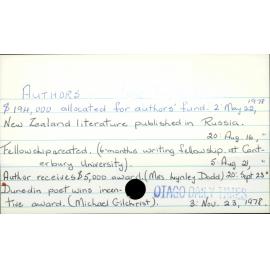 AUTHORS
1978
$194,000 allocated for authors' fund. 2: May 22,
New Zealand literature published in Russia.
20: Aug. 16, "
Fellowship created. (6 months writing fellowship at Cant-
erbury University).
5: Aug 21, "
Author receives $5,000 award. (Mrs Lynley Dodd) 20: Sept 23 "
Dunedin poet wins incen-
OTAGO DAILY TIMES
tive award. (Michael Gilchrist). 3: Nov. 23, 1978.